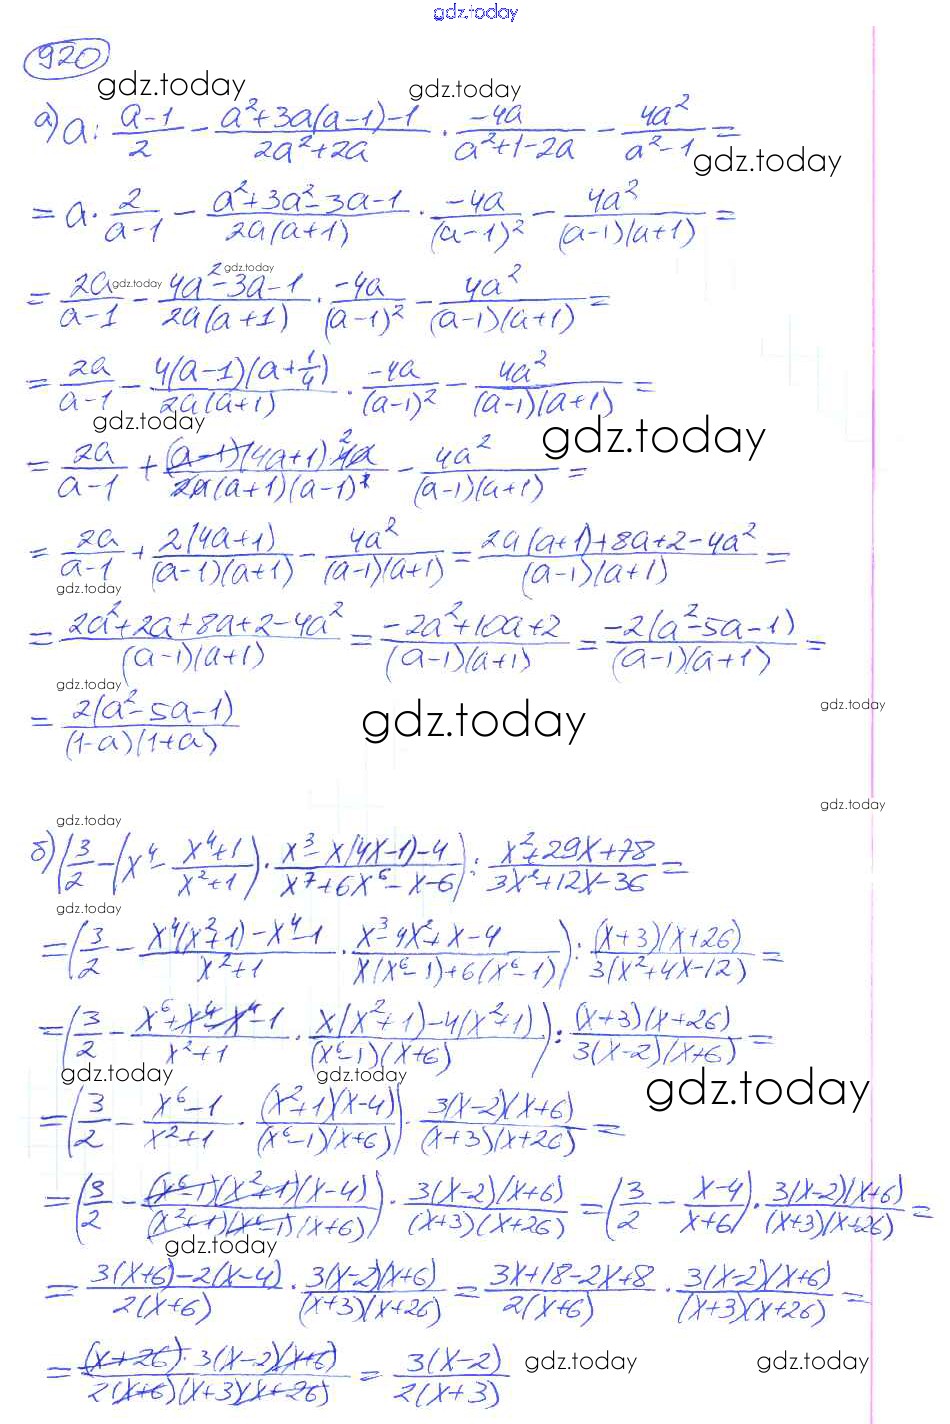 gdz.today
920
gdz.today gdz.today
а) a : (a-1)/2 - (a²+3a(a-1)-1)/(2a²+2a) · (-4a)/(a²+1-2a) - 4a²/(a²-1) =
gdz.today
= a · 2/(a-1) - (a²+3a²-3a-1)/(2a(a+1)) · (-4a)/(a-1)² - 4a²/((a-1)(a+1)) =
gdz.today
gdz.today
= 2a/(a-1) - (4a²-3a-1)/(2a(a+1)) · (-4a)/(a-1)² - 4a²/((a-1)(a+1)) =
= 2a/(a-1) - 4(a-1)(a+1/4)/(2a(a+1)) · (-4a)/(a-1)² - 4a²/((a-1)(a+1)) =
gdz.today gdz.today
= 2a/(a-1) + (a-1)(4a+1) 4a ²/(2a(a+1)(a-1)²¹) - 4a²/((a-1)(a+1)) =
= 2a/(a-1) + 2(4a+1)/((a-1)(a+1)) - 4a²/((a-1)(a+1)) = (2a(a+1)+8a+2-4a²)/((a-1)(a+1)) =
gdz.today
= (2a²+2a+8a+2-4a²)/((a-1)(a+1)) = (-2a²+10a+2)/((a-1)(a+1)) = -2(a²-5a-1)/((a-1)(a+1)) =
gdz.today
= 2(a²-5a-1)/((1-a)(1+a))
gdz.today gdz.today
gdz.today
gdz.today
б) (3/2 - (x⁴ - (x⁴+1)/(x²+1)) · (x³-x(4x-1)-4)/(x⁷+6x⁶-x-6)) : (x²+29x+78)/(3x²+12x-36) =
gdz.today
= (3/2 - (x⁴(x²+1)-x⁴-1)/(x²+1) · (x³-4x²+x-4)/(x(x⁶-1)+6(x⁶-1))) : (x+3)(x+26)/(3(x²+4x-12)) =
= (3/2 - (x⁶+x⁴-x⁴-1)/(x²+1) · (x(x²+1)-4(x²+1))/((x⁶-1)(x+6))) : (x+3)(x+26)/(3(x-2)(x+6)) =
gdz.today gdz.today gdz.today
= (3/2 - (x⁶-1)/(x²+1) · (x²+1)(x-4)/((x⁶-1)(x+6))) · 3(x-2)(x+6)/((x+3)(x+26)) =
= (3/2 - (x⁶-1)(x²+1)(x-4)/((x²+1)(x⁶-1)(x+6))) · 3(x-2)(x+6)/((x+3)(x+26)) = (3/2 - (x-4)/(x+6)) · 3(x-2)(x+6)/((x+3)(x+26)) =
gdz.today
= (3(x+6)-2(x-4))/(2(x+6)) · 3(x-2)(x+6)/((x+3)(x+26)) = (3x+18-2x+8)/(2(x+6)) · 3(x-2)(x+6)/((x+3)(x+26)) =
= (x+26)·3(x-2)(x+6)/(2(x+6)(x+3)(x+26)) = 3(x-2)/(2(x+3)) gdz.today gdz.today